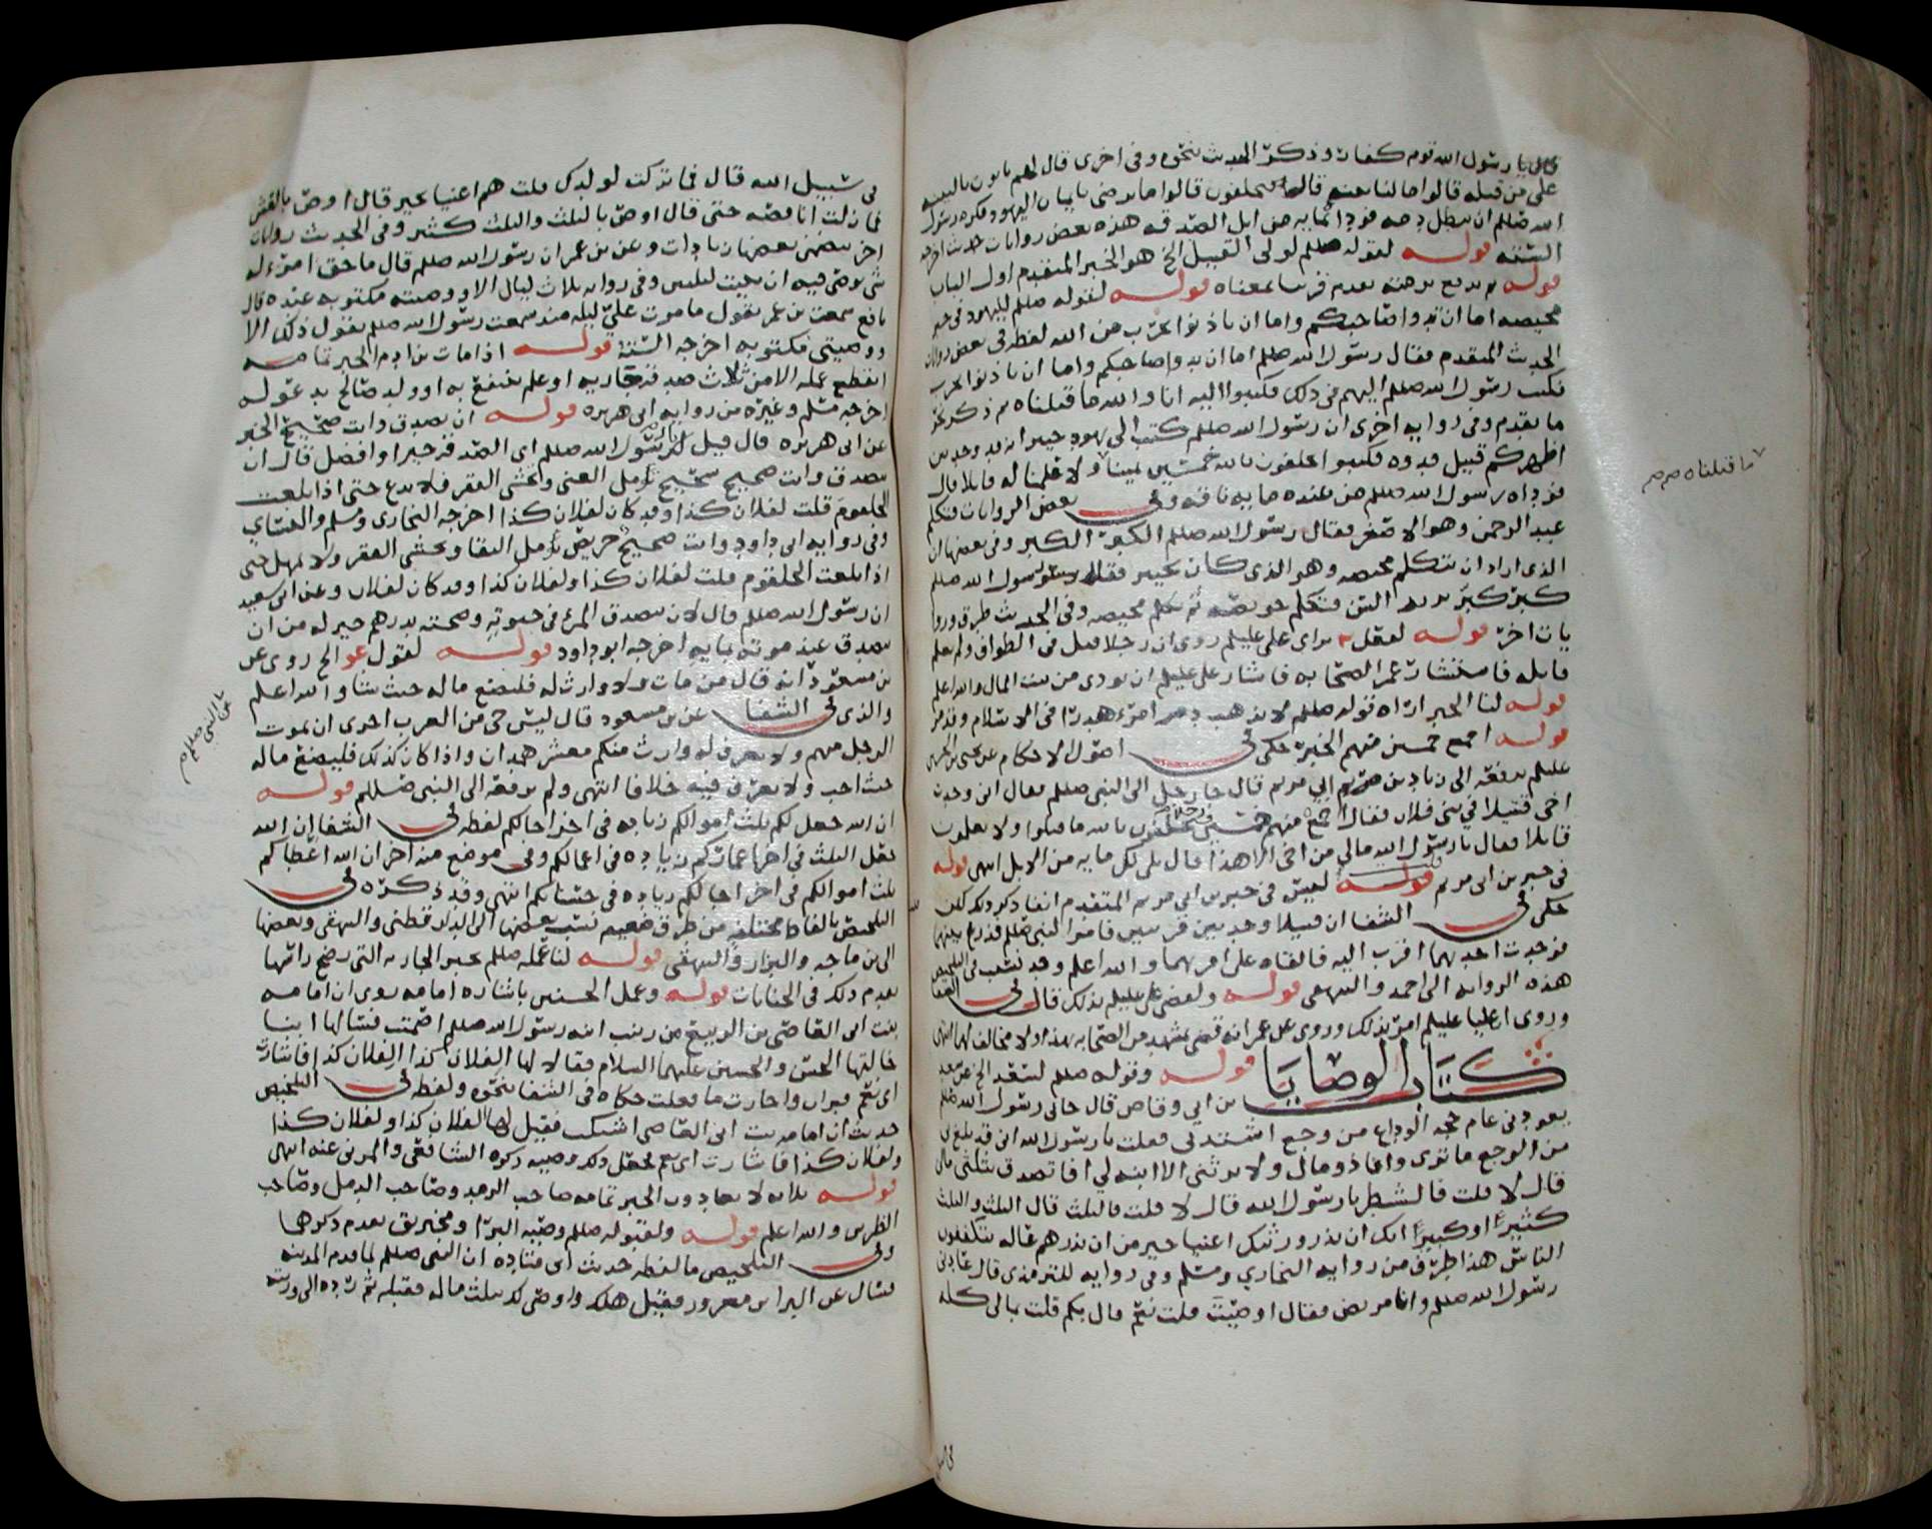 قالوا يا رسول الله قوم كفار وذكر الحديث بنحوه وفي اخرى قال لهم تاتون بالبينه
على من قتله قالوا ما لنا بينه قال فيحلفون قالوا ما نرضى بايمان اليهود فكره رسول
الله صللم ان يبطل دمه فوداه بمايه من ابل الصدقه هذه بعض روايات حديث اخرجه
الستة قوله لقوله صللم لولى القتيل الخ هو الخبر المتقدم اول الباب
قوله بمعناه قوله لقوله صللم لليهود في خبر
محيصه اما ان تدوا صاحبكم واما ان ياذنوا بحرب من الله لفظه في بعض روايات
الحديث المتقدم فقال رسول الله صللم اما ان يدوا صاحبكم واما ان ياذنوا بحرب
فكتب رسول الله صللم اليهم في ذلك فكتبوا اليه انا والله ما قتلناه ثم ذكر نحو
ما تقدم وفي روايه اخرى ان رسول الله صللم كتب الى يهود خيبر انه قد وجد بين
اظهركم قتيل فدوه فكتبوا يحلفون بالله خمسين يمينا ولا علمنا له قاتلا قال
فوداه رسول الله صللم من عنده مايه ناقه وفي بعض الروايات فتكلم
عبد الرحمن وهو الاصغر فقال رسول الله صللم الكبر الكبر وفي بعضها ان
الذي اراد ان يتكلم محيصه وهو الذي كان بخيبر فقال رسول الله صللم
كبر كبر يريد السن فتكلم حويصه ثم تكلم محيصه وفي الحديث طرق وروا
يات اخر قوله لعقل براى علي عليلم روى ان رجلا قتل في الطواف ولم يعلم
قاتله فاستشار عمر الصحابه فاشار علي عليلم ان يودى من بيت المال والله اعلم
قوله لنا الخبر اراه قوله صللم لا يذهب دم امرء هدرا في الاسلام وقد مر
قوله اجمع خمسين منهم الخبر حكى في اصول الاحكام عن يحيى بن الهادي
عليلم يرفعه الى زياد بن مريم ابي مريم قال جا رجل الى النبي صللم فقال اني وجدت
اخي قتيلا في بني فلان فقال اجمع منهم خمسين رجلا يحلفون بالله ما قتلوا ولا يعلمون
قاتلا فقال يا رسول الله مالي من اخي الا هذا قال بلى لك مايه من الابل انتهى قوله
في خبر بن ابي مريم قوله لعيين في خبر بن ابي مريم المتقدم انفا ذكر ذلك لكن
حكى في الشفا ان قتيلا وجد بين قريتين فامر النبي صللم فذرع بينهما
فوجدت احديهما اقرب اليه فالقاه على اقربهما والله اعلم وقد نسب في التلخيص
هذه الروايه الى احمد والبيهقي قوله ولقضى علي عليلم بذلك قال في الشفا
وروى ان عليا عليلم امر بذلك وروى عن عمر انه قضى بمشهد من الصحابه بهذا ولا مخالف لهما انتهى
كتاب الوصايا قوله وقوله صللم لسعد الخ عن سعد
بن ابي وقاص قال جاني رسول الله صللم
يعودني عام حجة الوداع من وجع اشتد بي فقلت يا رسول الله اني قد بلغ بي
من الوجع ما ترى وانا ذو مال ولا يرثني الا ابنه لي افاتصدق بثلثي مالي
قال لا قلت فالشطر يا رسول الله قال لا قلت فالثلث قال الثلث والثلث
كثير او كبير انك ان تذر ورثتك اغنيا خير من ان تذرهم عاله يتكففون
الناس هذا طرف من روايه البخاري ومسلم وفي روايه للترمذي قال عادني
رسول الله صللم وانا مريض فقال اوصيت قلت نعم قال بكم قلت بمالي كله
ما قتلناه صح
في سبيل الله قال فما تركت لولدك قلت هم اغنيا بخير قال اوص بالعشر
فما زلت اناقصه حتى قال اوص بالثلث والثلث كثير وفي الحديث روايات
اخر تتضمن بعضها زيادات وعن بن عمر ان رسول الله صللم قال ما حق امرء له
شي يوصي فيه ان يبيت ليلتين وفي روايه ثلاث ليال الا ووصيته مكتوبه عنده قال
نافع سمعت بن عمر يقول ما مرت علي ليله منذ سمعت رسول الله صللم يقول ذلك الا
ووصيتي مكتوبه اخرجه الستة قوله اذا مات بن ادم الخبر تمامه
انقطع عمله الا من ثلاث صدقه جاريه او علم ينتفع به او ولد صالح يدعو له
اخرجه مسلم وغيره من روايه ابي هريره قوله ان تصدق وانت صحيح الخبر
عن ابي هريره قال قيل لرسول الله صللم اي الصدقه خير او افضل قال ان
تصدق وانت صحيح شحيح تامل الغنى وتخشى الفقر فلا تدع حتى اذا بلغت
الحلقوم قلت لفلان كذا وقد كان لفلان كذا اخرجه البخاري ومسلم والنساي
وفي روايه ابي داود وانت صحيح حريص تامل البقا وتخشى الفقر ولا تمهل حتى
اذا بلغت الحلقوم قلت لفلان كذا ولفلان كذا وقد كان لفلان وعن ابي سعيد
ان رسول الله صللم قال لان يتصدق المرء في حيوته وصحته بدرهم خير له من ان
يتصدق عند موته بمايه اخرجه ابو داود قوله لقول الخ روى عن
بن مسعود انه قال من مات ولا وارث له فليضع ماله حيث شا والله اعلم
والذي في الشفا عن بن مسعود قال ليس حي من العرب احرى ان يموت
الرجل منهم ولا يعرف له وارث منكم معشر همدان واذا كان كذلك فليضع ماله
حيث احب ولا يعرف فيه خلافا انتهى ولم يرفعه الى النبي صللم قوله
ان الله جعل لكم ثلث اموالكم زياده في اخر اجالكم لفظه في الشفا ان الله
جعل الثلث في اخر اعماركم زياده في اعمالكم وفي موضع منه اخر ان الله اعطاكم
ثلث اموالكم في اخر اجالكم زياده في حسناتكم انتهى وقد ذكره في
التلخيص بالفاظ مختلفه من طرق ضعيفه نسب بعضها الى الدارقطني والبيهقي وبعضها
الى بن ماجه والبزار والبيهقي قوله لنا عمله صللم بخبر الجاريه التي رضخ راسها
تقدم ذلك في الجنايات قوله وعمل الحسنين باشاره امامه روى ان امامه
بنت ابي العاص بن الربيع من زينب ابنه رسول الله صللم اصمتت فسالها ابنا
خالتها الحسن والحسين عليهما السلام فقالا لها الفلان كذا الفلان كذا فاشارت
اي نعم فبرات واجازت ما فعلت حكاه في الشفا بنحوه ولفظه في التلخيص
حديث ان امامه بنت ابي العاص اشتكت فقيل لها لفلان كذا ولفلان كذا
ولفلان كذا فاشارت اي نعم فجعل ذلك وصيه ذكره الشافعي والمزني عنه انتهى
قوله ثلاثه لا يعادون الخبر تمامه صاحب الرمد وصاحب الدمل وصاحب
الضرس والله اعلم قوله ولقبوله صللم وصيه البرا ومخيريق تقدم ذكرهما
وفي التلخيص ما لفظه حديث ابي قتاده ان النبي صللم لما قدم المدينه
فسال عن البرا بن معرور فقيل هلك واوصى لك بثلث ماله فقبله ثم رده الى ورثته
عن النبي صللم صح